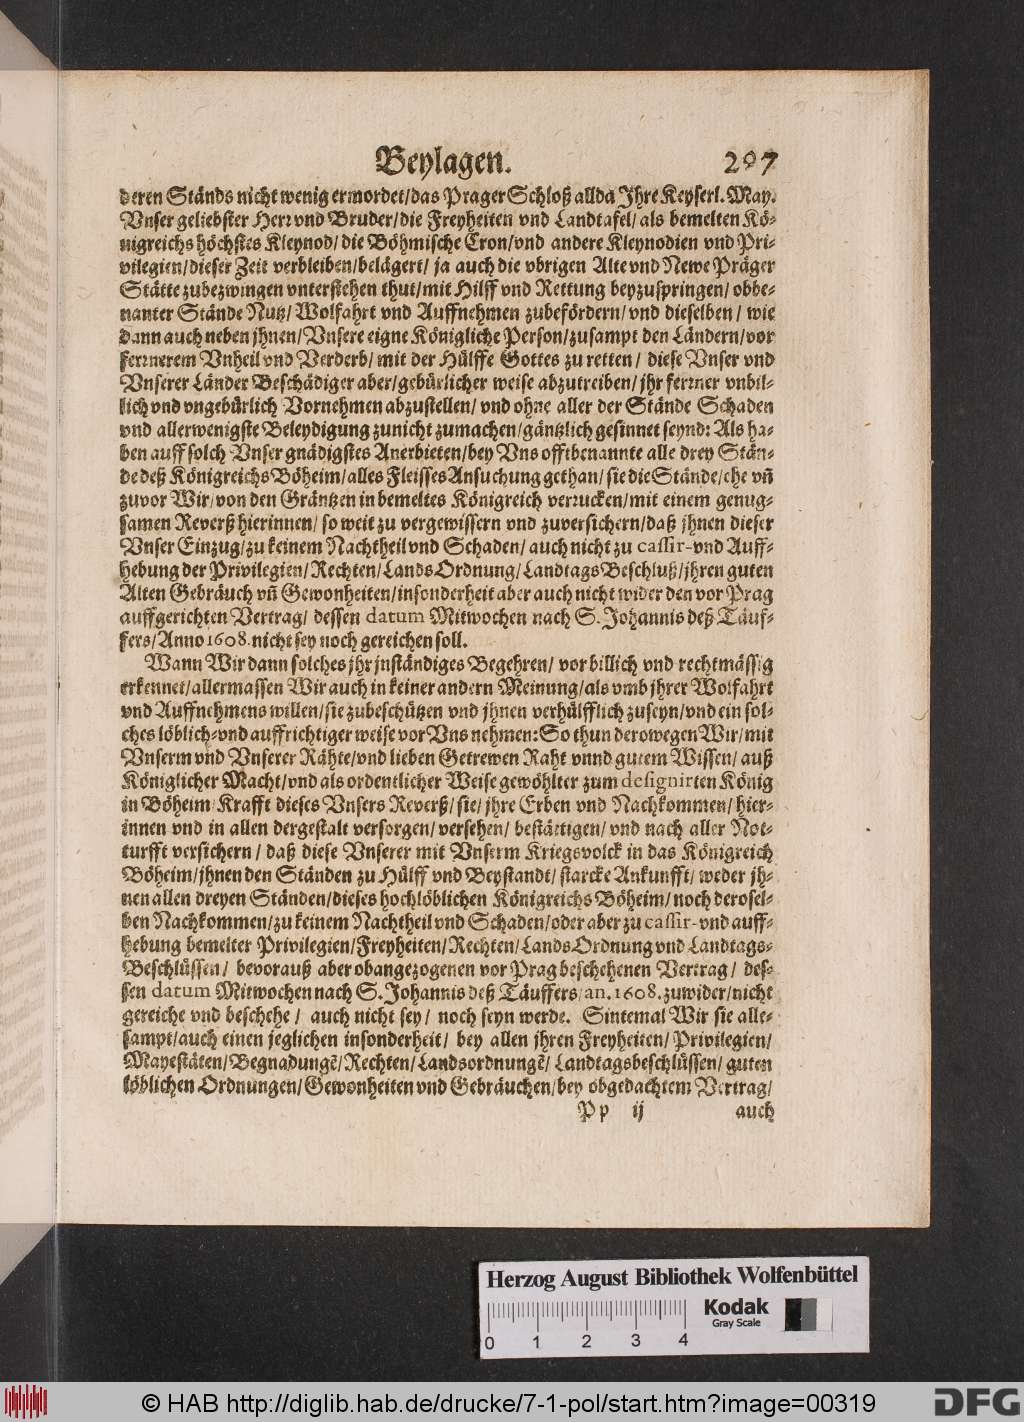 Beylagen. 297
deren Stånds nicht wenig ermordet/das Prager Schloß allda Jhre Keyserl. May.
Vnser geliebster Herr vnd Bruder/die Freyheiten vnd Landtafel/als bemelten Kö-
nigreichs höchstes Kleynod/die Böhmische Cron/vnd andere Kleynodien vnd Pri-
vilegien/dieser Zeit verbleiben/belägert/ ja auch die vbrigen Alte vnd Newe Präger
Stätte zubezwingen vnterstehen thut/mit Hilff vnd Rettung beyzuspringen/obbe-
nanter Stände Nutz/Wolfahrt vnd Auffnehmen zubefördern/vnd dieselben/ wie
dann auch neben jhnen/Vnsere eigne Königliche Person/zusampt den Ländern/vor
fernerem Vnheil vnd Verderb/mit der Hülffe Gottes zu retten/ diese Vnser vnd
Vnserer Länder Beschädiger aber/gebürlicher weise abzutreiben/jhr ferrner vnbil-
lich vnd vngebürlich Vornehmen abzustellen/vnd ohne aller der Stände Schaden
vnd allerwenigste Beleydigung zunicht zumachen/gäntzlich gesinnet seynd: Als ha-
ben auff solch Vnser gnädigstes Anerbieten/bey Vns offtbenannte alle drey Stän-
de deß Königreichs Böheim/alles Fleisses Ansuchung gethan/sie die Stände/ehe vñ
zuvor Wir/von den Gräntzen in bemeltes Königreich verrucken/mit einem genug-
samen Reverß hierinnen/ so weit zu vergewissern vnd zuversichern/daß jhnen dieser
Vnser Einzug/zu keinem Nachtheil vnd Schaden/auch nicht zu cassir-vnd Auff-
hebung der Privilegien/Rechten/LandsOrdnung/LandtagsBeschluß/jhren guten
Alten Gebräuch vñ Gewonheiten/insonderheit aber auch nicht wider den vor Prag
auffgerichten Vertrag/ dessen datum Mitwochen nach S. Johannis deß Täuf-
fers/Anno 1608. nicht sey noch gereichen soll.
Wann Wir dann solches jhr jnständiges Begehren/ vor billich vnd rechtmässig
erkennet/allermassen Wir auch in keiner andern Meinung/als vmb jhrer Wolfahrt
vnd Auffnehmens willen/sie zubeschützen vnd jhnen verhülfflich zuseyn/vnd ein sol-
ches löblich-vnd auffrichtiger weise vor Vns nehmen: So thun derowegen Wir/mit
Vnserm vnd Vnserer Rähte/vnd lieben Getrewen Raht vnnd gutem Wissen/ auß
Königlicher Macht/vnd als ordentlicher Weise gewöhlter zum designirten König
in Böheim/Krafft dieses Vnsers Reverß/sie/jhre Erben vnd Nachkommen/hier-
innen vnd in allen dergestalt versorgen/versehen/ bestättigen/vnd nach aller Not-
turfft versichern/ daß diese Vnserer mit Vnserm Kriegsvolck in das Königreich
Böheim/jhnen den Ständen zu Hülff vnd Beystandt/starcke Ankunfft/weder jh-
nen allen dreyen Ständen/dieses hochlöblichen Königreichs Böheim/noch derosel-
ben Nachkommen/zu keinem Nachtheil vnd Schaden/oder aber zu cassir-vnd auff-
hebung bemelter Privilegien/Freyheiten/Rechten/LandsOrdnung vnd Landtags-
Beschlüssen/ bevorauß aber obangezogenen vor Prag beschehenen Vertrag/ des-
sen datum Mitwochen nach S. Johannis deß Täuffers/an. 1608. zuwider/nicht
gereiche vnd beschehe/ auch nicht sey/ noch seyn werde. Sintemal Wir sie alle-
sampt/auch einen jeglichen insonderheit/ bey allen jhren Freyheiten/Privilegien/
Mayestäten/Begnadungē/Rechten/Landsordnungē/ Landtagsbeschlüssen/guten
löblichen Ordnungen/Gewonheiten vnd Gebräuchen/bey obgedachtem Vertrag/
Pp ij auch
Herzog August Bibliothek Wolfenbüttel
Kodak
Gray Scale
0 1 2 3 4
© HAB http://diglib.hab.de/drucke/7-1-pol/start.htm?image=00319
DFG